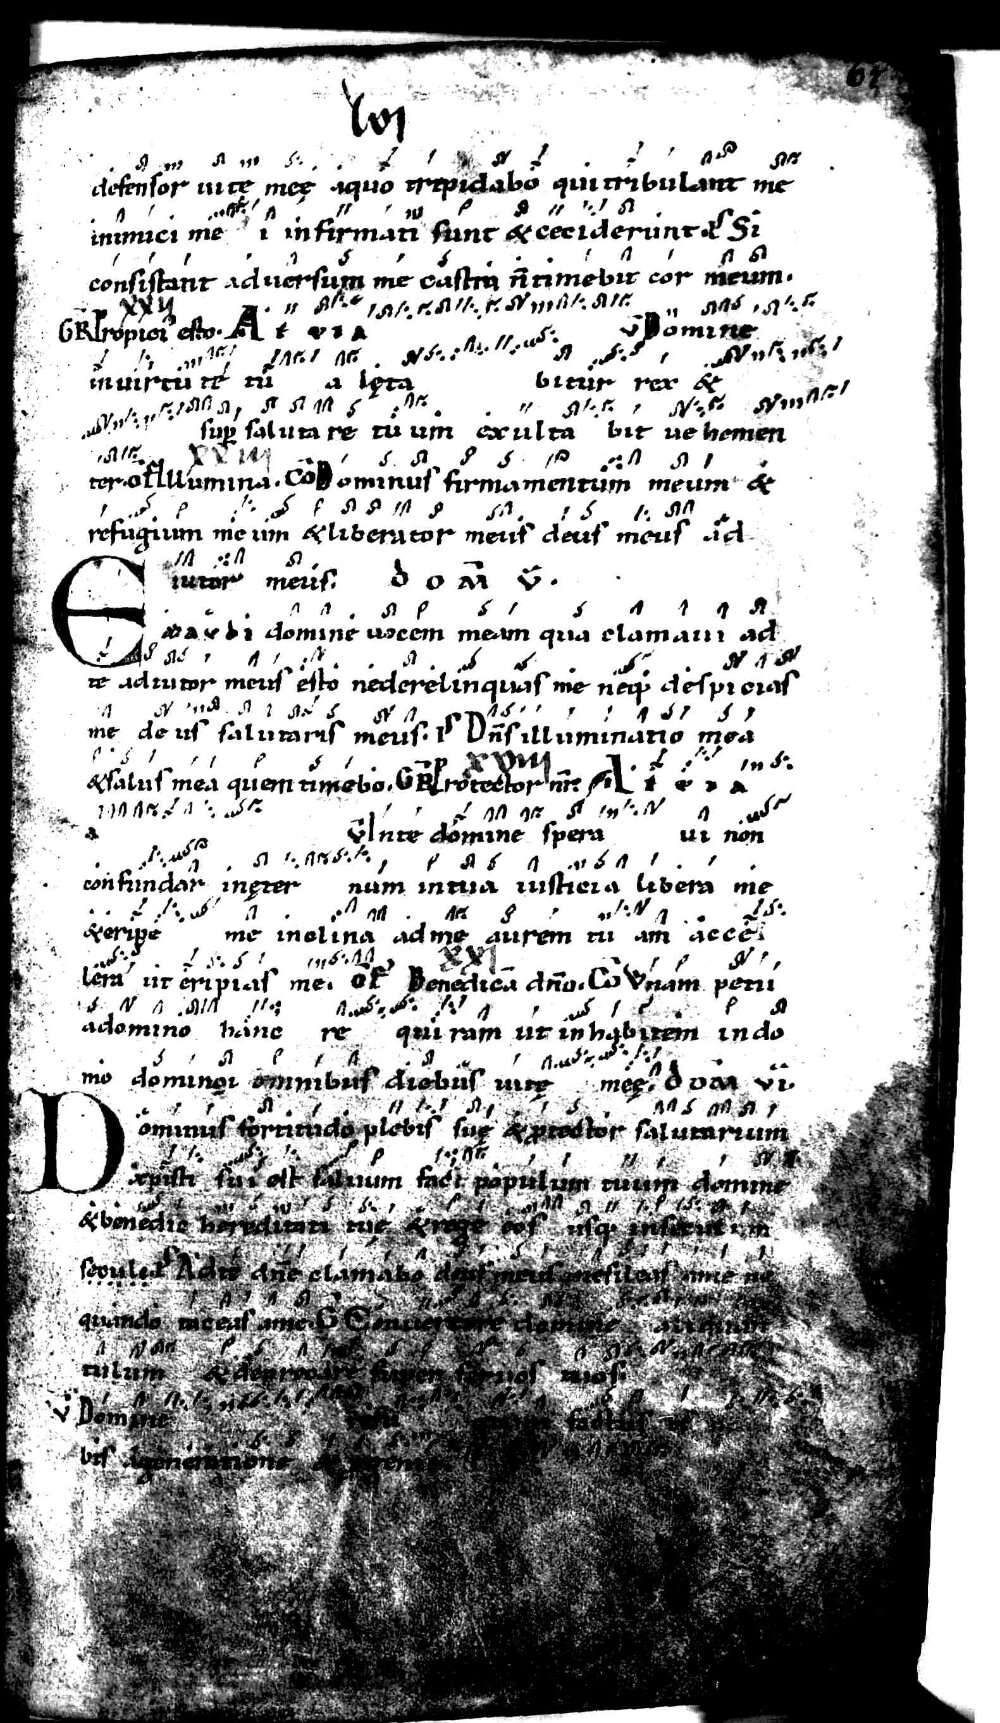 64
lvi
defensor uite meę aquo trepidabo qui tribulant me
inimici me i infirmati sunt & ceciderunt. ps Si
consistant aduersum me castra n̄ timebit cor meum.
xxvj
GR Propici esto. A e v i a v̄ Domine
in uirtu te tu a lęta bitur rex &
sup salutare tuum exulta bit uehemen
xxiiij
ter. of Illumina. Cō Dominus firmamentum meum &
refugium meum & liberator meus deus meus ad
iutor meus. DOM̄ V̄.
Exaudi domine uocem meam qua clamaui ad
te adiutor meus esto ne derelinquas me neq; despicias
me deus salutaris meus. ps Dn̄s illuminatio mea
xviij
& salus mea quem timebo. GR Protector nr̄. A e v i a
a v̄ In te domine spera ui non
confundar in ęter num in tua iusticia libera me
& eripe me inclina ad me aurem tu am acce
xxj
lera ut eripias me. of Benedicā dn̄o. Cō Vnam petii
a domino hanc re quiram ut inhabitem in do
mo domini omnibus diebus uitę meę. DOM̄ VI.
Dominus fortitudo plebis suę & protector salutarium
xpisti sui est saluum fac populum tuum domine
& benedic hereditati tuę & rege eos usq; in seculum
seculi. ps Ad te dn̄e clamabo deus meus ne sileas a me ne
quando taceas a me. G Conuertere domine aliquan
tulum & deprecare super seruos tuos.
v̄ Domine factus
bis a generatione &